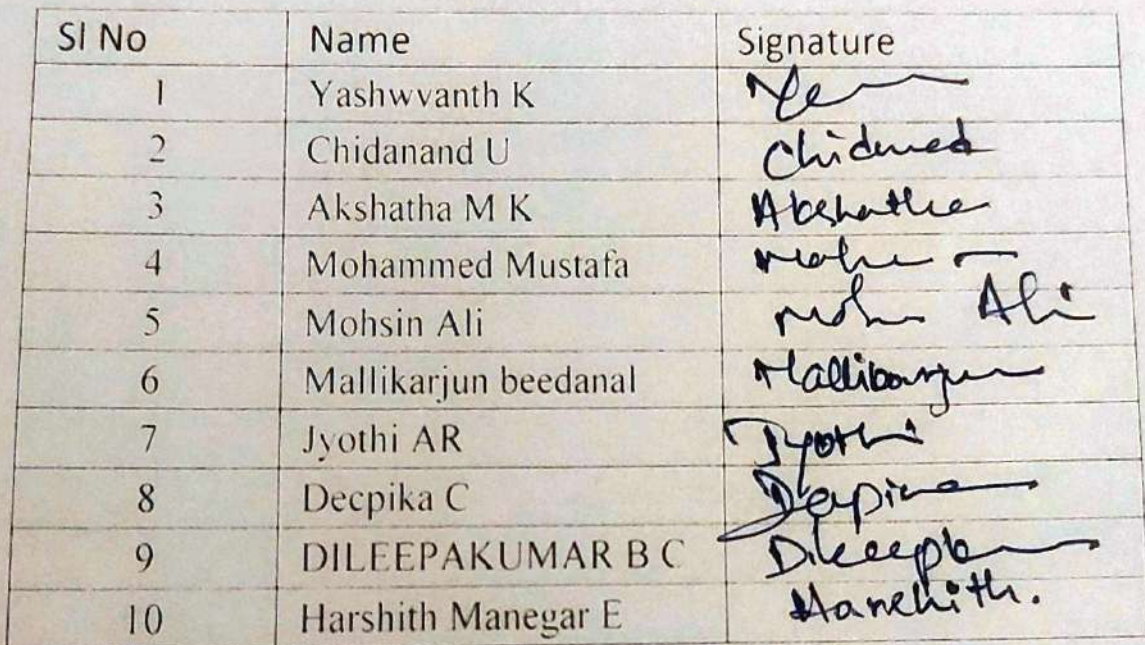 Sl No Name Signature
1 Yashwvanth K
2 Chidanand U
3 Akshatha M K Akshatha
4 Mohammed Mustafa
5 Mohsin Ali Ali
6 Mallikarjun beedanal Mallikarjun
7 Jyothi AR Jyothi
8 Deepika C
9 DILEEPAKUMAR B C
10 Harshith Manegar E